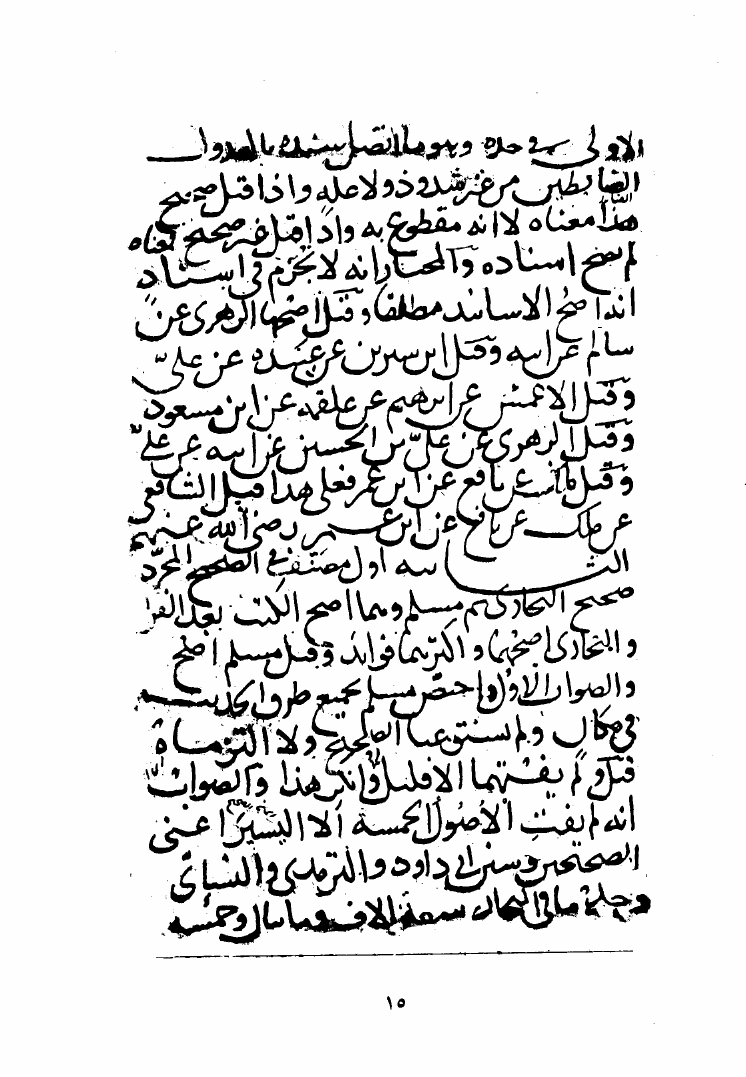 الاولى في حده وهو ما اتصل سنده بالعدول
الضابطين من غير شذوذ ولا علة واذا قيل صحيح
فهذا معناه لا انه مقطوع به واذا قيل غير صحيح فمعناه
لم يصح اسناده والمختار انه لا يجزم في اسناد
انه اصح الاسانيد مطلقا وقيل اصحها الزهري عن
سالم عن ابيه وقيل ابن سيرين عن عبيدة عن علي
وقيل الاعمش عن ابرهيم عن علقمه عن ابن مسعود
وقيل الزهري عن علي بن الحسين عن ابيه عن علي
وقيل مالك عن نافع عن ابن عمر فعلى هذا قيل الشافعي
عن ملك عن نافع عن ابن عمر رضي الله عنهم
الثانيه اول مصنف في الصحيح المجرد
صحيح البخاري ثم مسلم وهما اصح الكتب بعد القران
والبخاري اصحهما واكثرهما فوائد وقيل مسلم اصح
والصواب الاول واختص مسلم بجمع طرق الحديث
في مكان ولم يستوعبا الصحيح ولا التزماه
قيل ولم يفتهما الا قليل وانكر هذا والصواب
انه لم يفت الأصول الخمسة الا اليسير اعني
الصحيحين وسنن ابي داود والترمذي والنسائي
وجملة ما في البخاري سبعة الاف ومايتان وخمسه
١٥